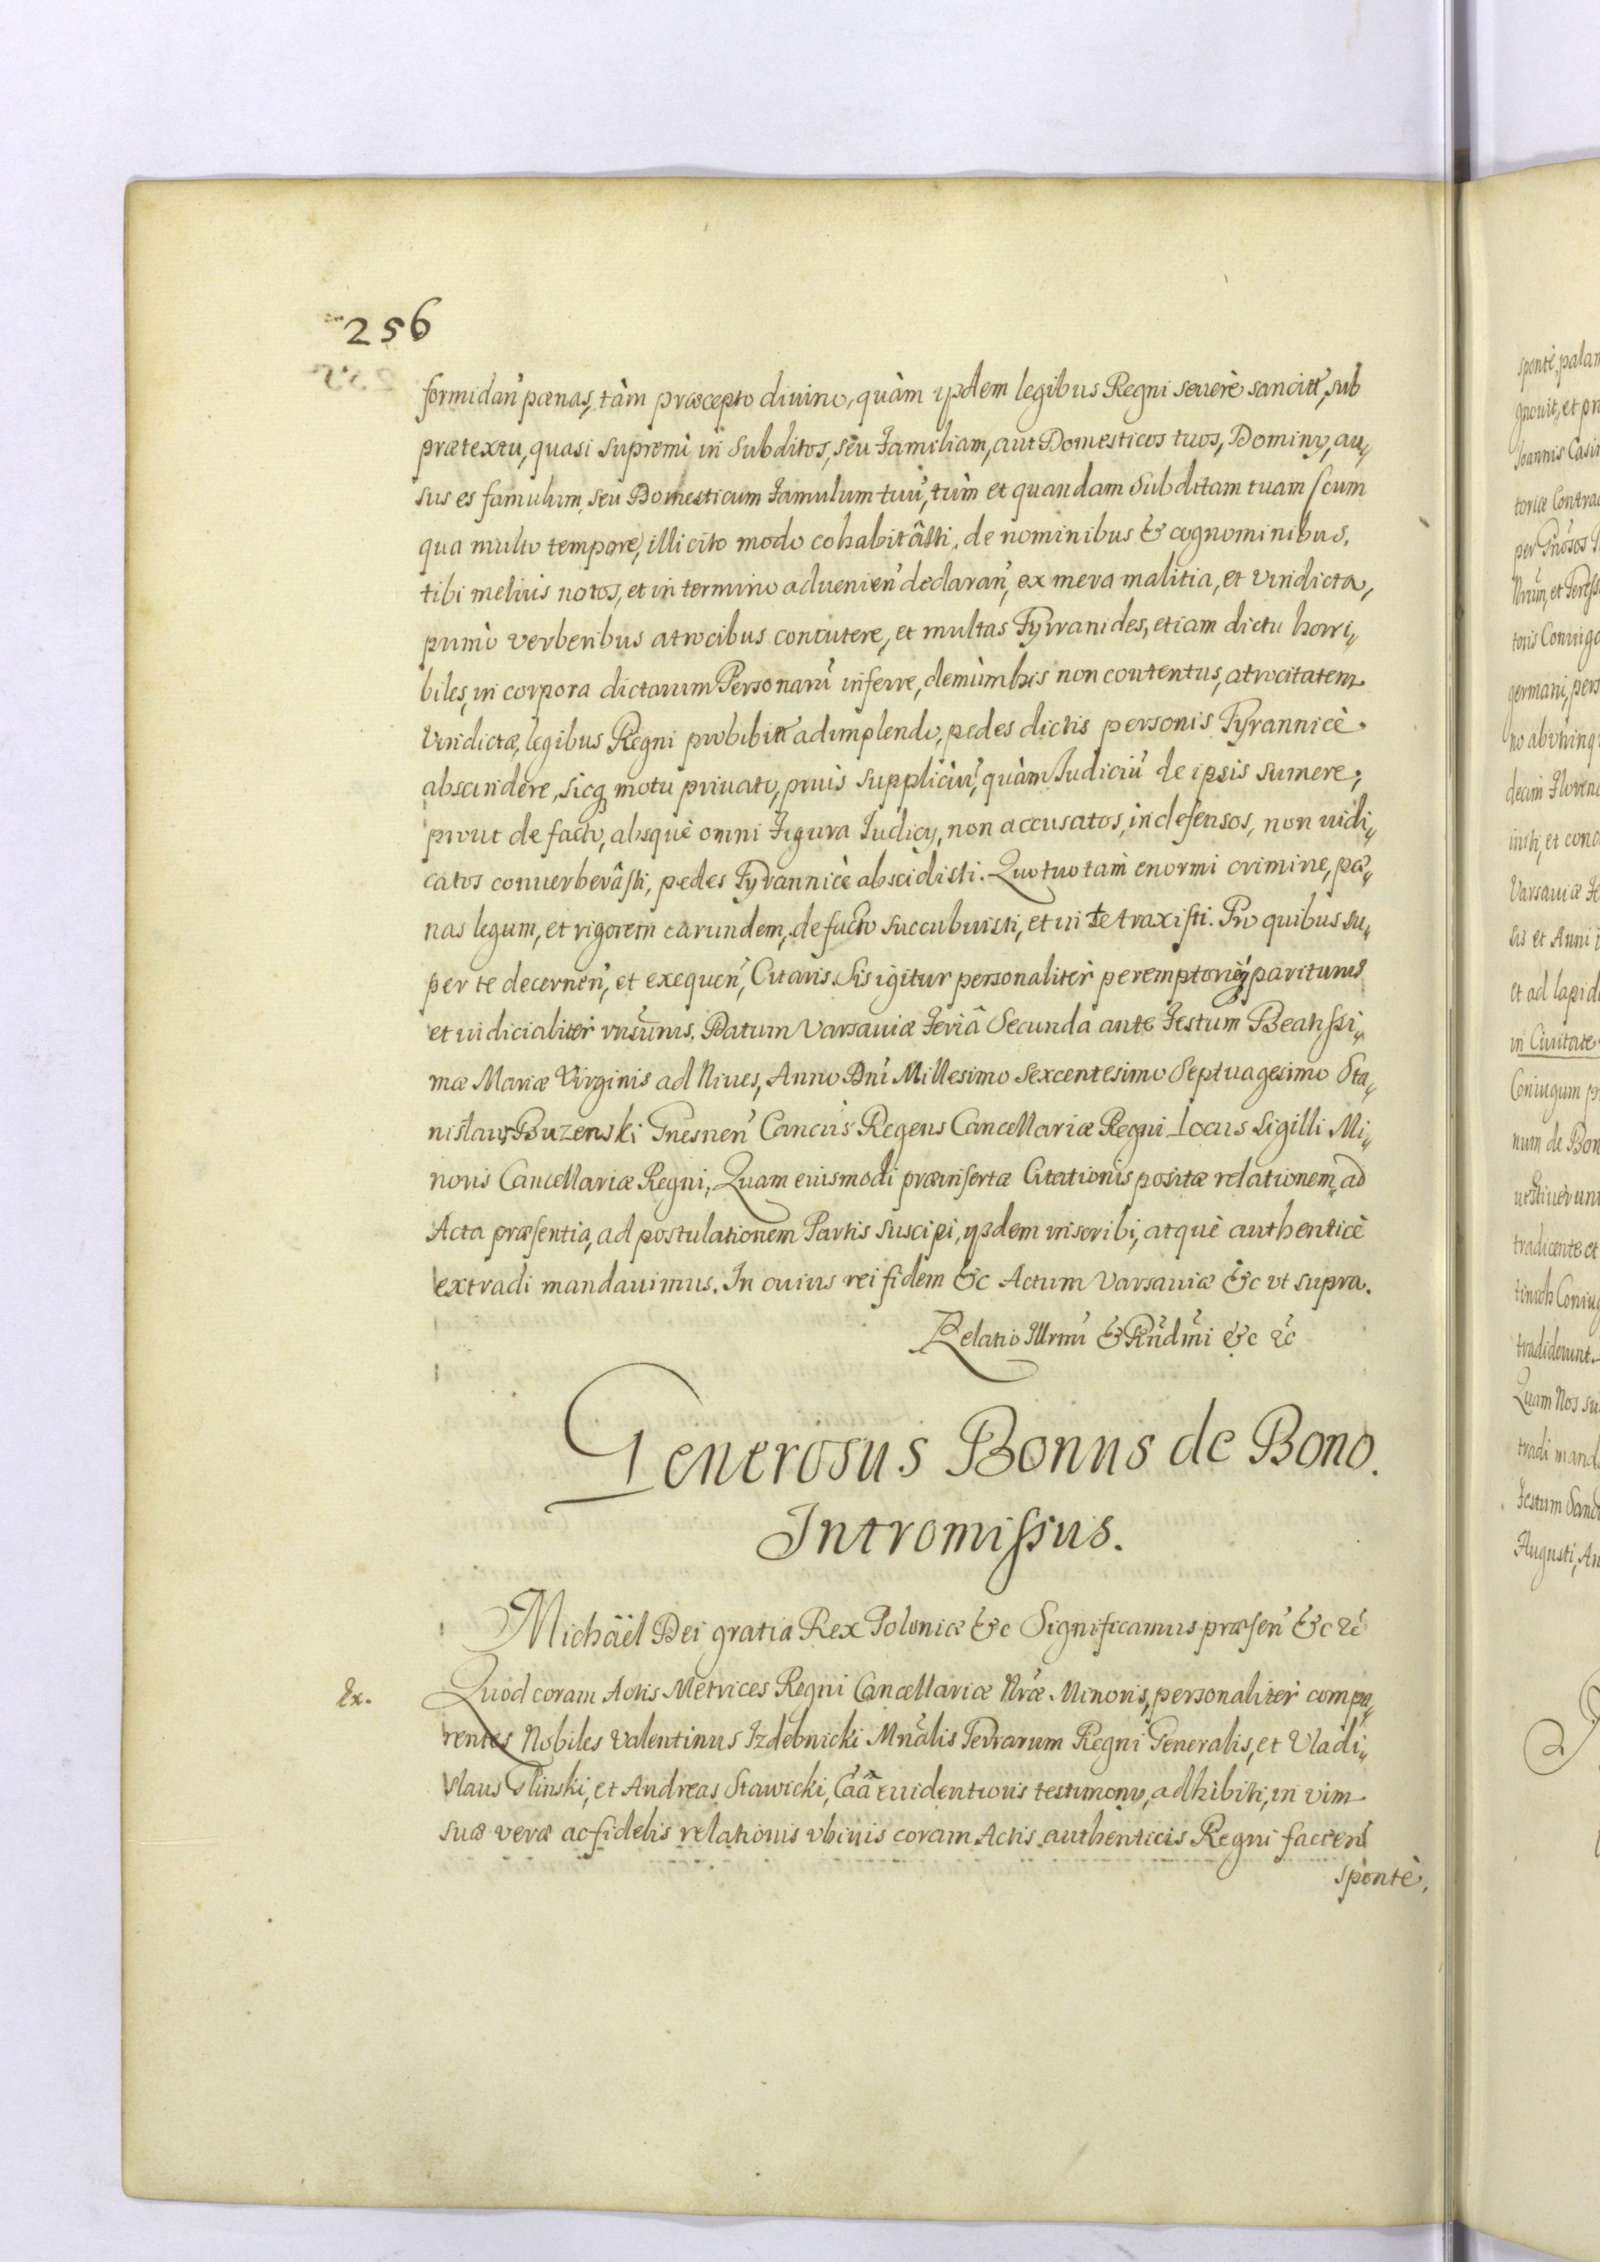 256
formidan̄ pænas, tàm præcepto diuino, quàm ijsdem legibus Regni seuerè sancitt̄, sub
prætextu, quasi supremi in subditos, seu Familiam, aut Domesticos tuos, Dominij, au„
sus es famulum, seu Domesticum Famulum tuū, tùm et quandam Subditam tuam /cum
qua multo tempore, illicito modo cohabitâsti, de nominibus & cognominibus,
tibi melius notos, et in termino aduenien̄ declaran̄, ex mera malitia, et vindicta,
primò verberibus atrocibus concutere, et multas Tyrranides, etiam dictu horri„
biles, in corpora dictarum Personarū inferre, demùm his non contentus, atrocitatem
vindictæ, legibus Regni prohibitt̄ adimplendo, pedes dictis personis Tyrannicè
abscindere, sicq, motu priuato, priùs suppliciū, quàm Iudiciū de ipsis sumere;
prout de facto, absquè omni Figura Iudicij, non accusatos, indefensos, non iudi„
catos conuerberâsti, pedes Tyrannicè abscidisti. Quo tuo tam enormi crimine, pæ„
nas legum, et rigorem earundem, de facto succubuisti, et in te traxisti. Pro quibus su„
per te decernen̄, et exequen̄, Citaris. Sis igitur personaliter peremptoriè pariturus
et iudicialiter rn̄surus. Datum Varsauiæ Feriâ Secunda ante Festum Beatissi„
mæ Mariæ Virginis ad Niues, Anno Dnī Millesimo Sexcentesimo Septuagesimo Sta„
nislaus Buzenski Gnesnen̄ Cancūs Regens Cancellariæ Regni Locus Sigilli Mi„
noris Cancellariæ Regni, Quam eiusmodi præinsertæ Citationis positæ relationem, ad
Acta præsentia, ad postulationem Partis suscipi, ijsdem inscribi, atquè authenticè
extradi mandauimus. In cuius rei fidem &c Actum Varsauiæ &c vt supra.
Relatio Illrmī & Rn̄dmī &c &c
Generosus Bonus de Bono.
Intromissus.
Michäel Dei gratia Rex Poloniæ &c Significamus præsen̄ &c &c
Ex.
Quod coram Actis Metrices Regni Cancellariæ Nr̄æ Minoris, personaliter compa„
rentes Nobiles Valentinus Izdebnicki Mn̄alis Terrarum Regni Generalis, et Vladi„
slaus Glinski, et Andreas Stawicki, Cāâ euidentioris testimonij, adhibiti, in vim
suæ veræ ac fidelis relationis vbiuis coram Actis authenticis Regni facien̄
spontè,